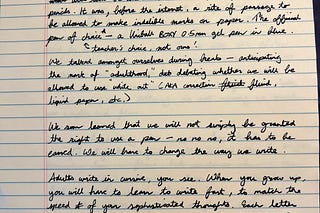 periods. It was, before the internet, a rite of passage to
be allowed to make indelible marks on paper. The official
pen of choice* — a Uniball BOXY 0.5mm gel pen in blue.
*teacher's choice, not ours!
We talked amongst ourselves during breaks — anticipating
the mark of "adulthood", debating whether we will be
allowed to use white out (AKA correction fluid,
liquid paper, etc.)
We soon learned that we will not simply be granted
the right to use a pen — no no no, it has to be
earned. We will have to change the way we write.
Adults write in cursive, you see. When you grow up,
you will have to learn to write fast, to match the
speed of your sophisticated thoughts. Each letter